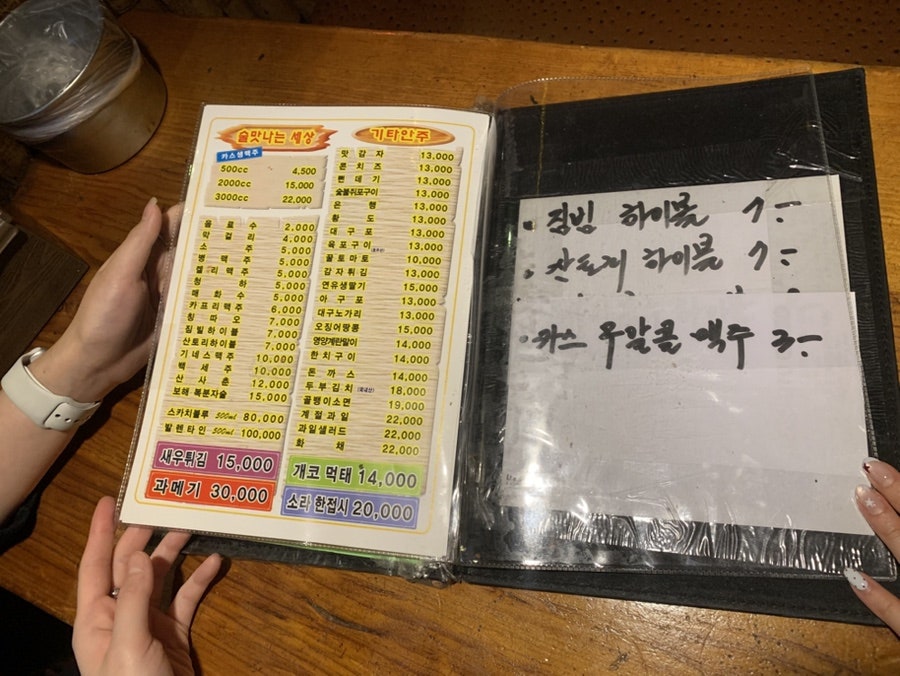 술맛나는 세상
카스생맥주
500cc 4,500
2000cc 15,000
3000cc 22,000
음료수 2,000
막걸리 4,000
소주 5,000
병맥주 5,000
켈리맥주 5,000
청하 5,000
매화수 5,000
카프리맥주 6,000
칭따오 7,000
짐빔하이볼 7,000
산토리하이볼 7,000
기네스맥주 10,000
백세주 10,000
산사춘 12,000
보해 복분자술 15,000
스카치블루 500ml 80,000
발렌타인 500ml 100,000
새우튀김 15,000
과메기 30,000
기타안주
맛감자 13,000
콘치즈 13,000
뻔데기 13,000
숯불쥐포구이 13,000
은행 13,000
황도 13,000
대구포 13,000
육포구이 13,000
꿀토마토 10,000
감자튀김 13,000
연유생딸기 15,000
아구포 13,000
대구노가리 13,000
오징어땅콩 15,000
영양계란말이 14,000
한치구이 14,000
돈까스 14,000
두부김치 (국내산) 18,000
골뱅이소면 19,000
계절과일 22,000
과일샐러드 22,000
화채 22,000
개코 먹태 14,000
소라 한접시 20,000
· 짐빔 하이볼 7.-
· 산토리 하이볼 7.-
· 카스 무알콜 맥주 3.-